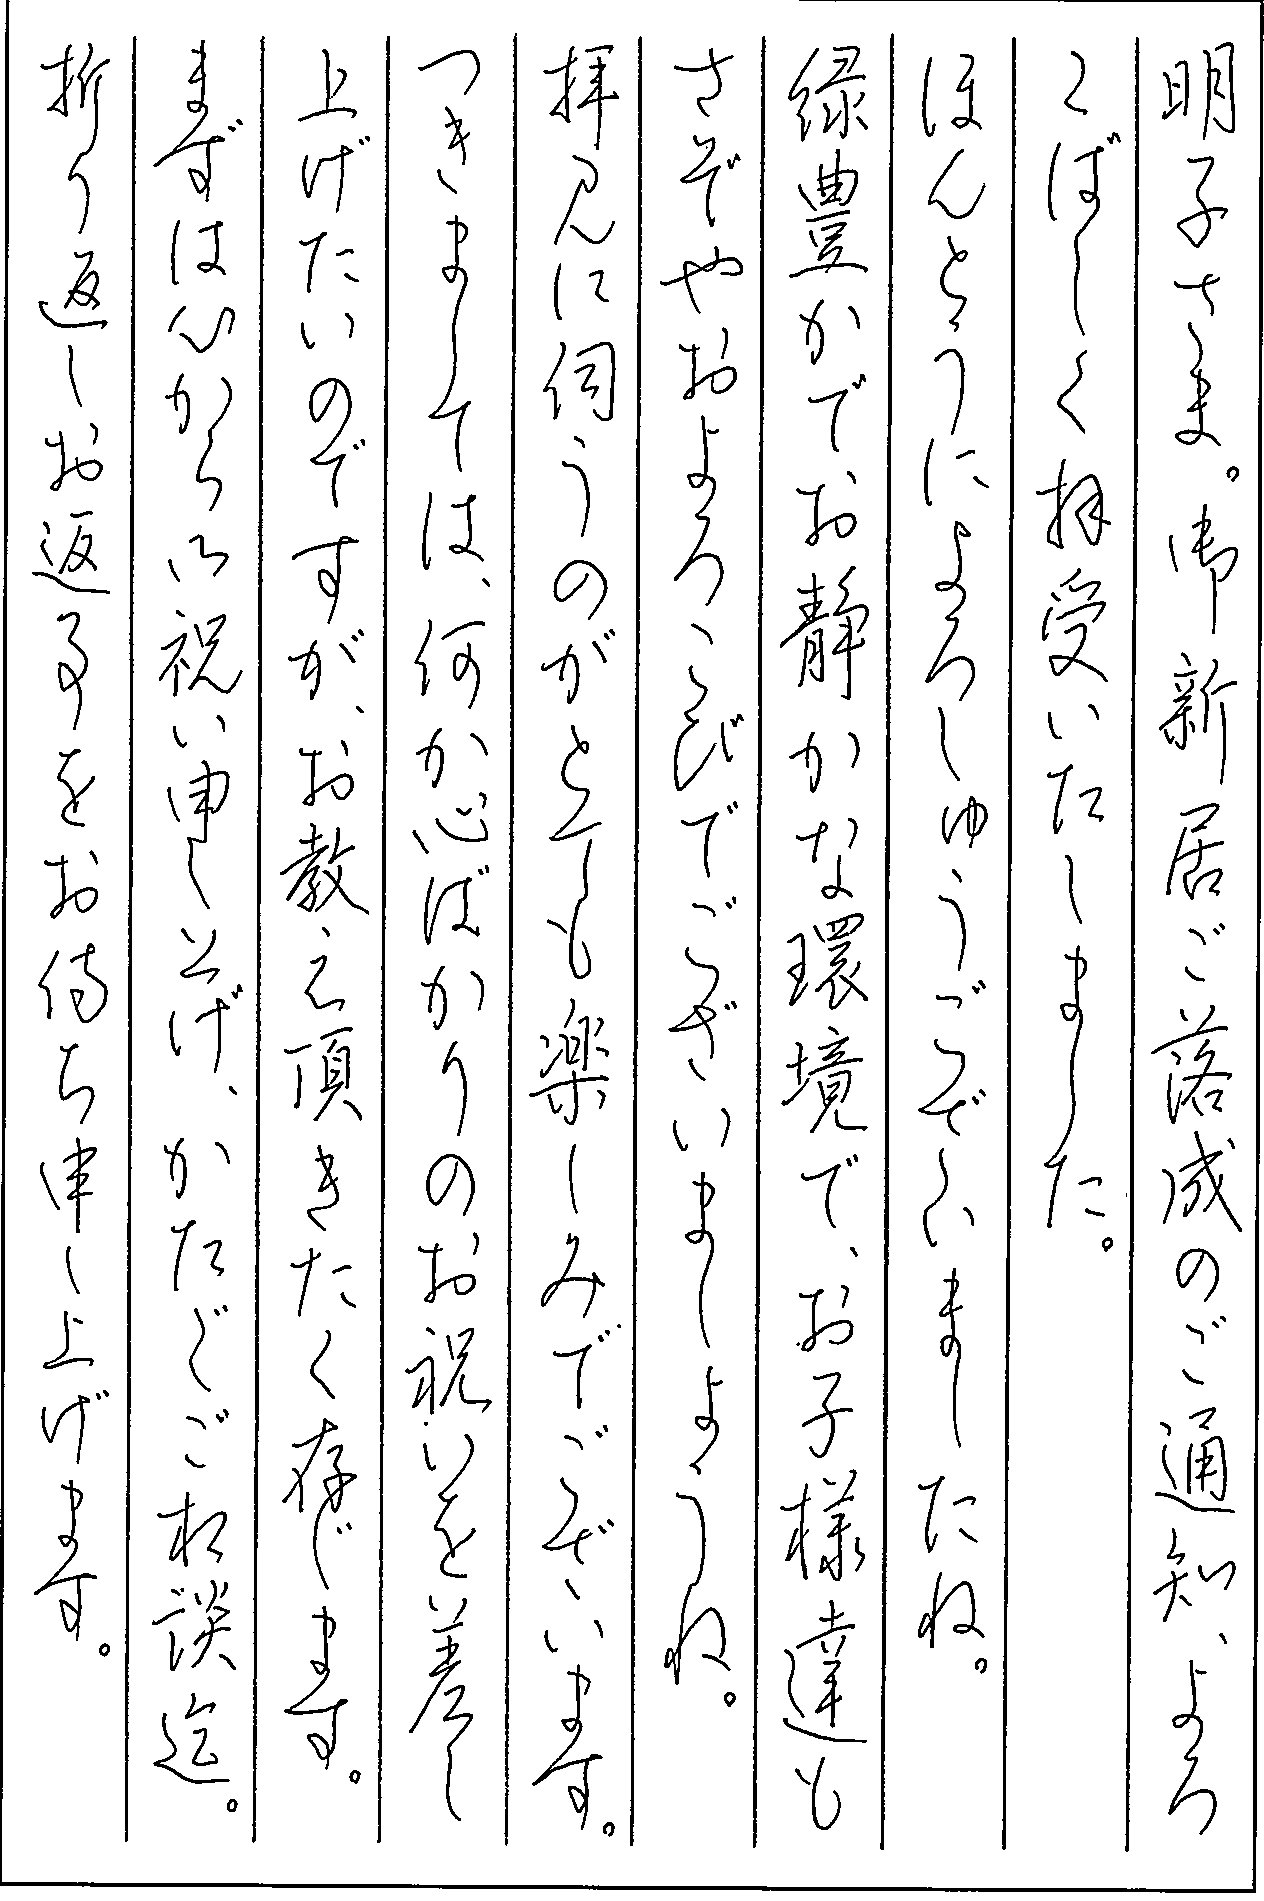 明子さま。御新居ご落成のご通知、よろ
こばしく拝受いたしました。
ほんとうによろしゅうございましたね。
緑豊かでお静かな環境で、お子様達も
さぞやおよろこびでございましょうね。
拝見に伺うのがとても楽しみでございます。
つきましては、何か心ばかりのお祝いを差し
上げたいのですが、お教え頂きたく存じます。
まずは心から御祝い申し上げ、かたがたご相談迄。
折り返しお返事をお待ち申し上げます。